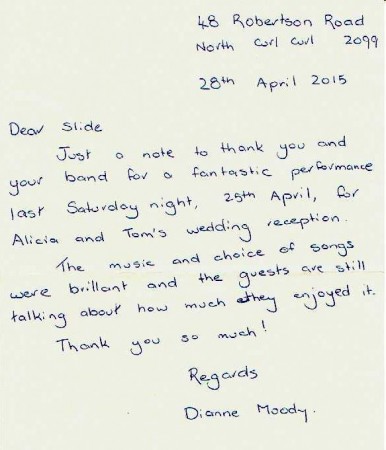 48 Robertson Road
North Curl Curl 2099
28th April 2015
Dear Slide
Just a note to thank you and
your band for a fantastic performance
last Saturday night, 25th April, for
Alicia and Tom's wedding reception.
The music and choice of songs
were brillant and the guests are still
talking about how much they enjoyed it.
Thank you so much!
Regards
Dianne Moody.